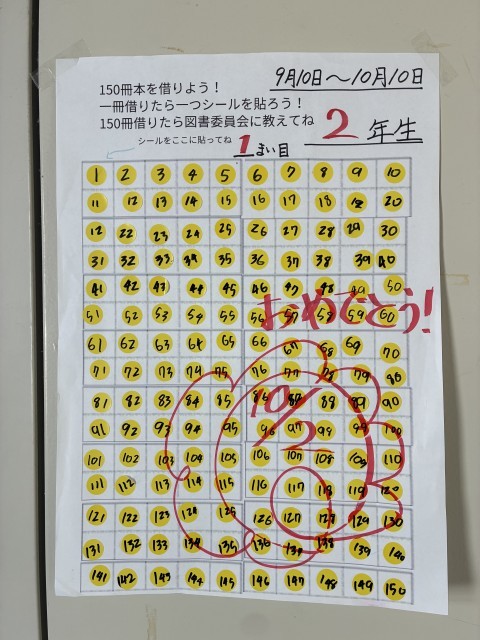 9月10日〜10月10日
150冊本を借りよう！
一冊借りたら一つシールを貼ろう！
150冊借りたら図書委員会に教えてね
2年生
シールをここに貼ってね
1まい目
1 2 3 4 5 6 7 8 9 10
11 12 13 14 15 16 17 18 19 20
12 22 23 24 25 26 27 28 29 30
31 32 33 34 35 36 37 38 39 40
41 42 43 44 45 46 47 48 49 50
おめでとう！
51 52 53 54 55 56 57 58 59 60
61 62 63 64 65 66 67 68 69 70
71 72 73 74 75 76 77 78 79 80
81 82 83 84 85 86 87 88 89 90
10/2
91 92 93 94 95 96 97 98 99 100
101 102 103 104 105 106 107 108 109 110
111 112 113 114 115 116 117 118 119 120
121 122 123 124 125 126 127 128 129 130
131 132 133 134 135 136 137 138 139 140
141 142 143 144 145 146 147 148 149 150